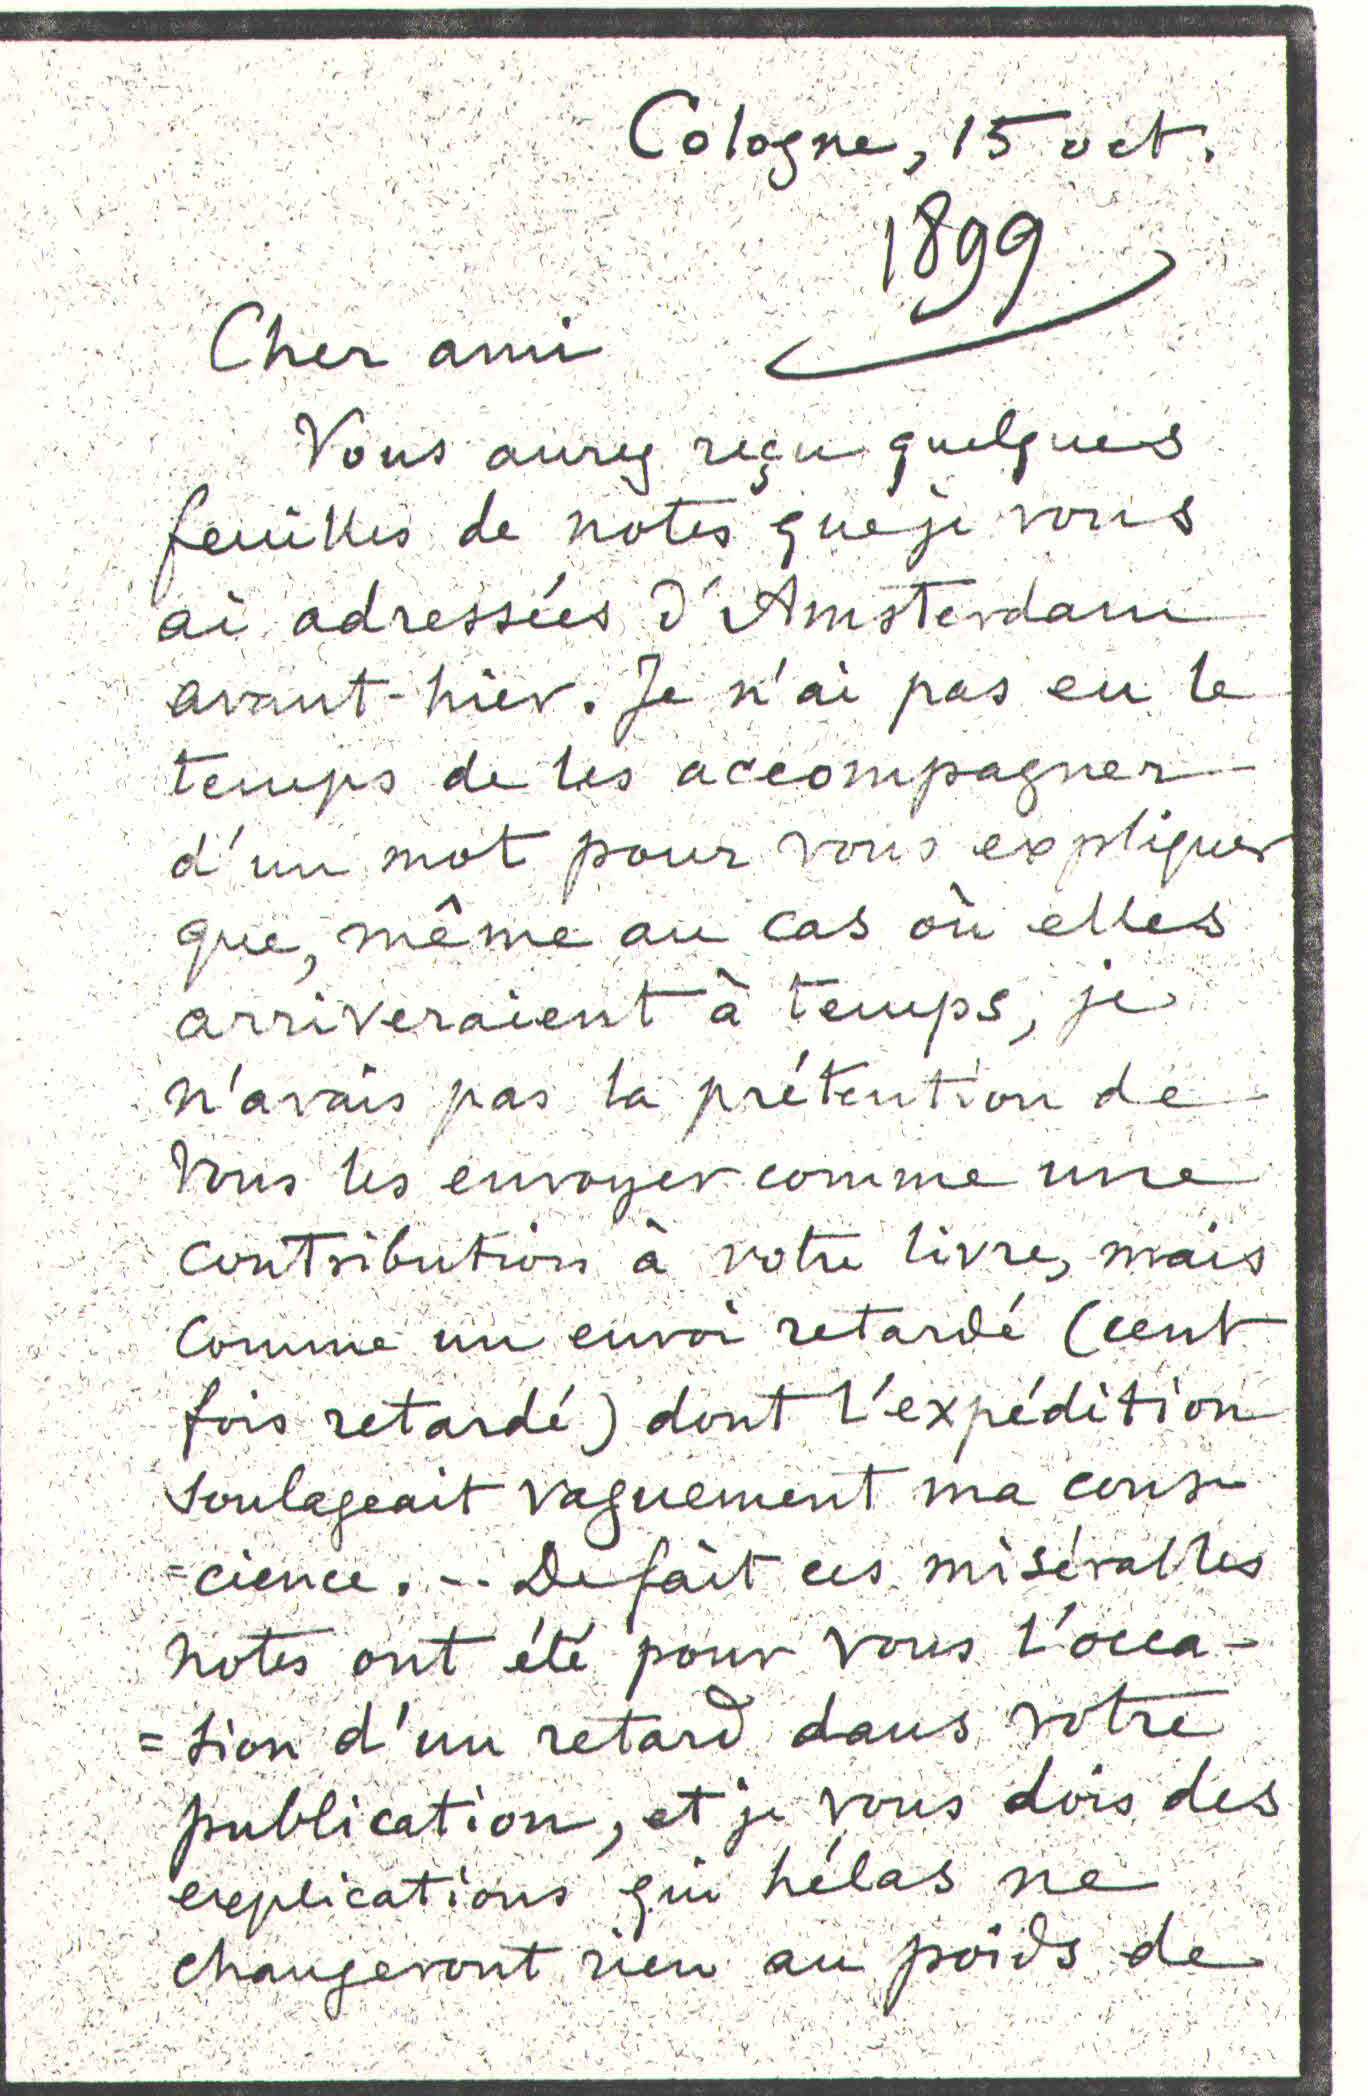 Cologne, 15 oct.
1899
Cher ami
Vous aurez reçu quelques
feuilles de notes que je vous
ai adressées d'Amsterdam
avant-hier. Je n'ai pas eu le
temps de les accompagner
d'un mot pour vous expliquer
que, même au cas où elles
arriveraient à temps, je
n'avais pas la prétention de
vous les envoyer comme une
contribution à votre livre, mais
comme un envoi retardé (cent
fois retardé) dont l'expédition
soulageait vaguement ma cons-
=cience. -.. De fait ces misérables
notes ont été pour vous l'occa-
=sion d'un retard dans votre
publication, et je vous dois des
explications qui hélas ne
changeront rien au poids de